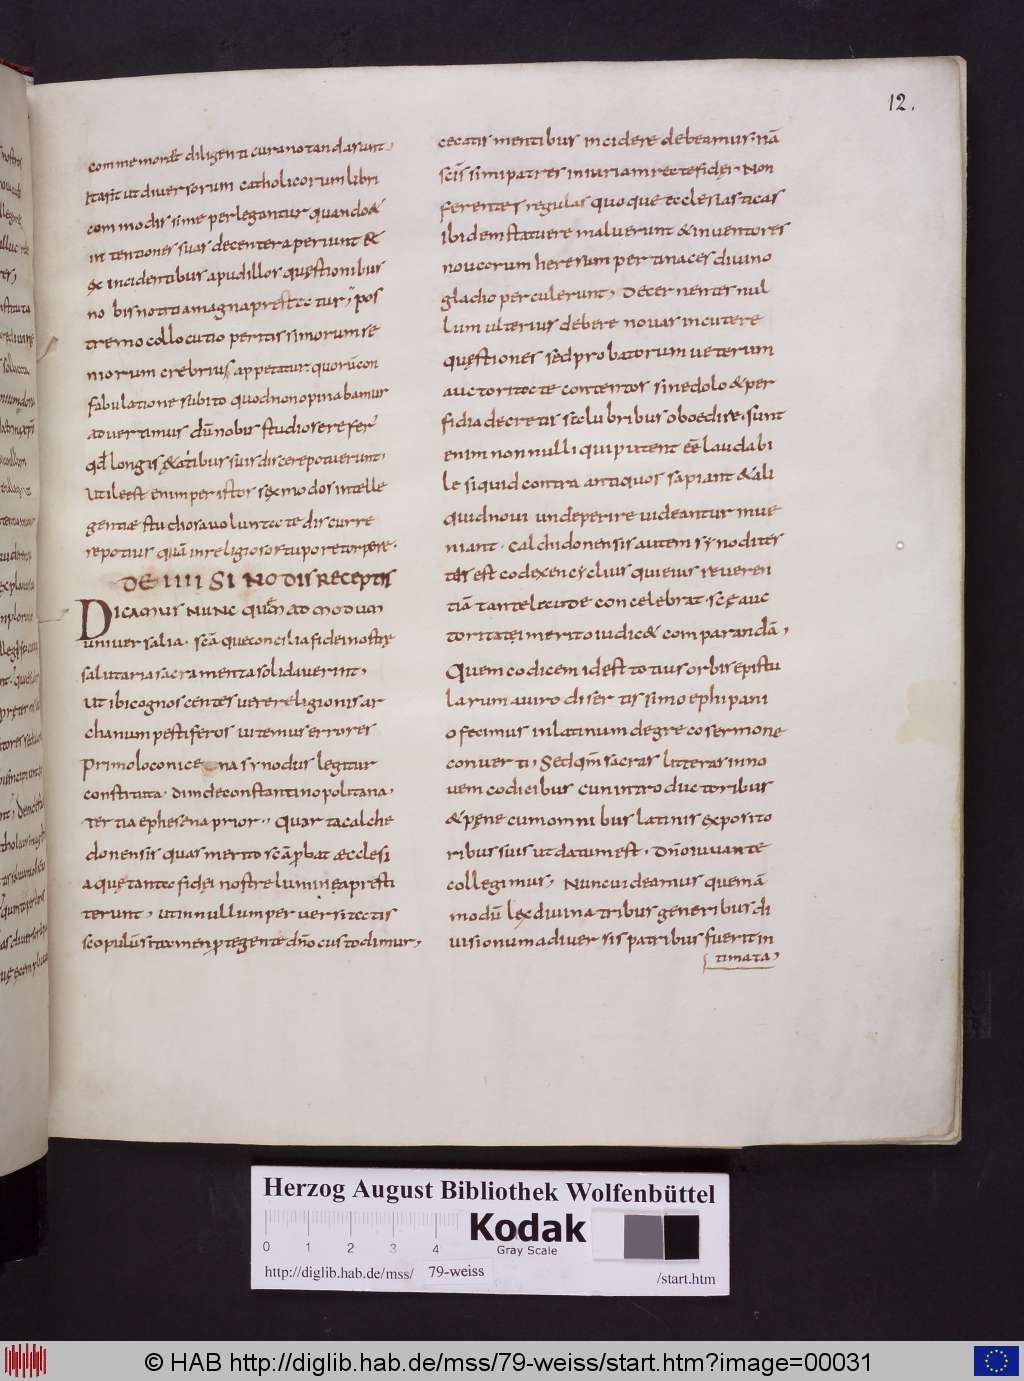 12.
commemor& diligenti cura notandas sunt,
Ita fit ut diversorum catholicorum libri
commodissime perlegantur quando &
intentiones suas decenter aperiunt &
ex incidentibus apud illos quęstionibus
nobis notitia magna prestetur; pos
tremo collocutio peritissimorum se
niorum crebrius appetatur quorū con
fabulatione subito quod non opinabamur
advertimus dū nobis studiose refer̄
qđ longis ętatibus suis discere potuerunt,
Utile est enim per istos sex modos intelle
gentiæ studiosa voluntate discurre
re potius quā inreligioso stupore torpere.
DE IIII SINODIS RECEPTIS
DICAMUS NUNC quē ad modum
universalia. scā que concilia fidei nostrę
salutaria sacramenta solidaverint,
Ut ibi cognoscentes vere religionis ar
chanum pestiferos vitemus errores
Primo loco nicena synodus legitur
constituta. Dein de constantinopolitana,
tertia ephesena prior, Quarta calche
donensis quas merito scā ꝓbat æcclesi
a quę tanto fidęi nostre lumin ea presti
terunt, ut in nullum perversitatis
scopulū si tamen ꝓtegente dn̄o custodimur,
cecatis mentibus incidere debeamus. nā
scīs simi patres iniuriam recte fidei Non
ferentes regulas quoque ecclesiasticas
ibidem statuere maluerunt & inventores
novorum heresum pertinaces divino
gladio perculerunt, Decernentes nul
lum ulterius debere novas incutere
quęstiones sed probatorum veterum
auctoritate contentos sine dolo & per
fidia decretis salubribus oboedire. sunt
enim nonnulli qui putent eē laudabi
le si quid contra antiquos sapiant & ali
quid novi unde perire videantur inve
niant. Calchidonensis autem synodi tes
tis est codex encyclius qui eius reveren
tiā tantelaude concelebrat. scę auc
toritatęi merito iudic& comparandā,
Quem codicem id est totius orbis epistu
larum a viro disertissimo ephipani
o fecimus in latinum de greco sermone
converti, Sed qm̄ sacras litteras in no
vem codicibus cum introductoribus
& pęne cum omnibus latinis exposito
ribus suis ut datum est. Dn̄o iuvante
collegimus, Nunc videamus quemā
modū lex divina tribus generibus di
visionum a diversis patribus fuerit in
timata,
Herzog August Bibliothek Wolfenbüttel
Kodak
Gray Scale
0 1 2 3 4
http://diglib.hab.de/mss/ 79-weiss /start.htm
© HAB http://diglib.hab.de/mss/79-weiss/start.htm?image=00031